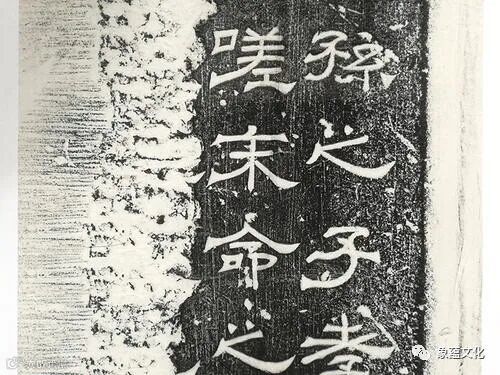 孫之子孝
嗟末命之
文化